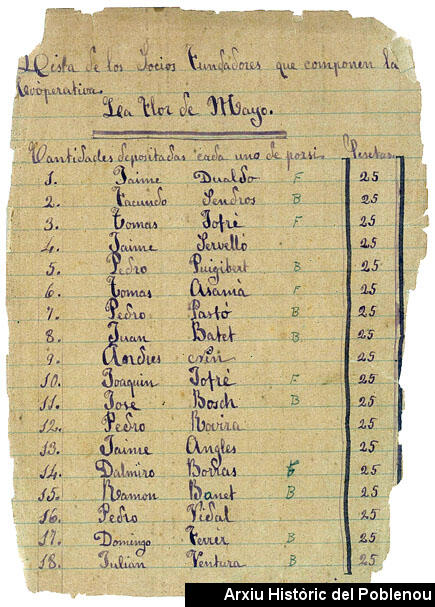 Lista de los Socios Fundadores que componen la
Cooperativa.
La Flor de Mayo.
Cantidades depositadas cada uno de porsi. Pesetas.
1. Jaime Dualdo F 25
2. Facundo Sendros B 25
3. Tomas Jofrè F 25
4. Jaime Servelló 25
5. Pedro Puigibert B 25
6. Tomas Asamà F 25
7. Pedro Pastó B 25
8. Juan Batet B 25
9. Andres 25
10. Joaquin Jofrè F 25
11. José Bosch B 25
12. Pedro Rovira 25
13. Jaime Angles 25
14. Dalmiro Borras 25
15. Ramon Banet B 25
16. Pedro Vidal 25
17. Domingo Ferrer B 25
18. Julian Ventura B 25
Arxiu Històric del Poblenou